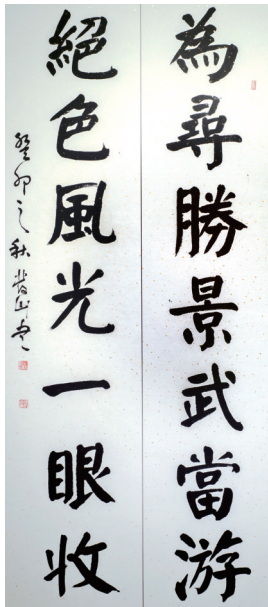 為尋勝景武當游
絕色風光一眼收
癸卯之秋